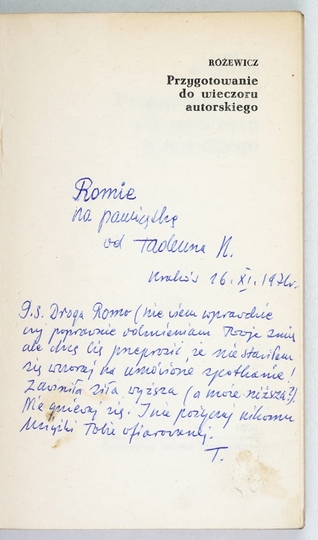 RÓŻEWICZ
Przygotowanie
do wieczoru
autorskiego
Romie
na pamiątkę
od Tadeusza K.
Kraków 16.XI.1971r.
P.S. Droga Romo (nie wiem wprawdzie
czy poprawnie odmieniam Twoje imię
ale chcę Cię przeprosić, że nie stawiłem
się wczoraj na umówione spotkanie!
Zawiniła siła wyższa (a może niższa?).
Nie gniewaj się. I nie pożyczaj nikomu
książki Tobie ofiarowanej.
T.